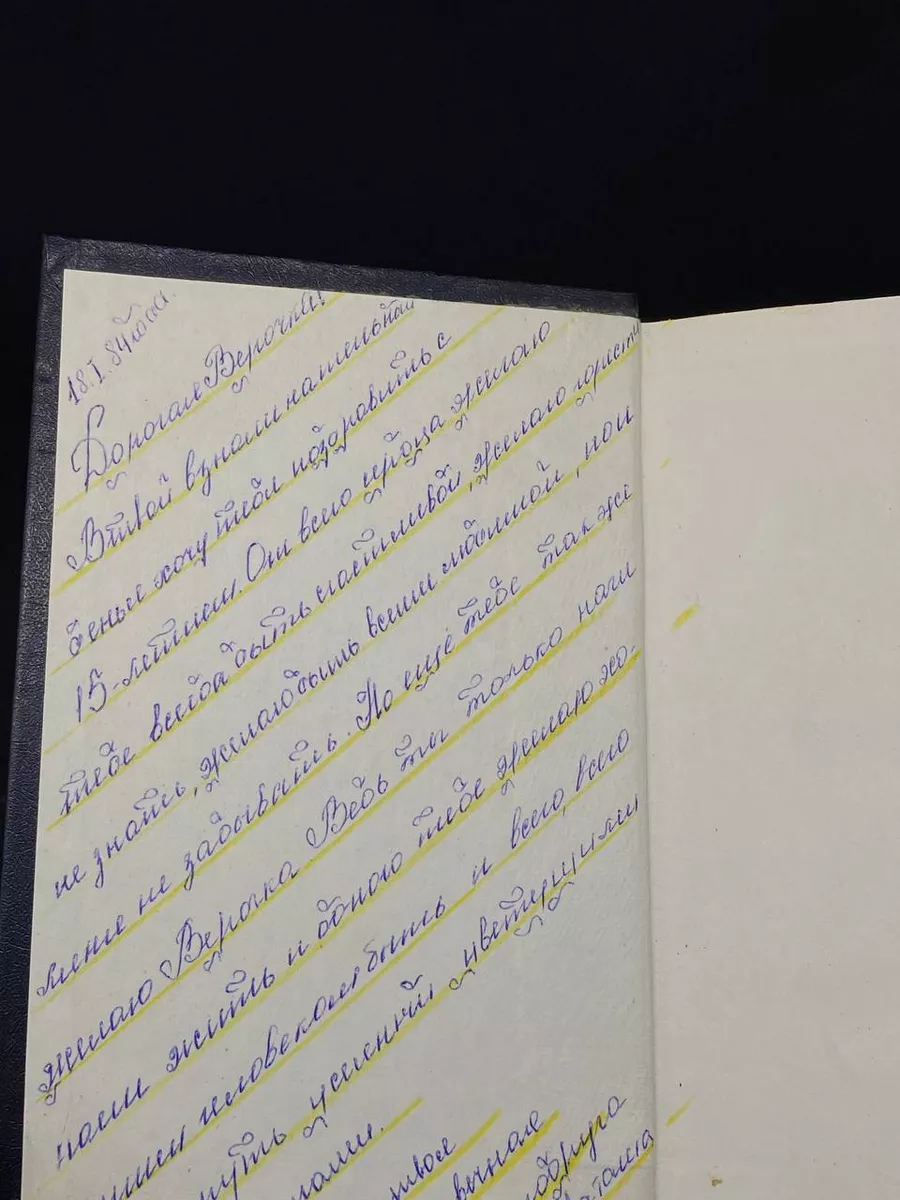 18.I.84года.
Дорогая Верочка!
В твой взнаменательный
день я хочу тебя поздравить с
15-летием. От всего сердца желаю
тебе всегда быть счастливой, желаю горести
не знать, желаю быть всеми любимой, ной
меня не забывать. По еще тебе так же
желаю Верочка Ведь ты только нач
наеш жить и одного тебе желаю хо-
шим человеком быть и всего, всего
путь жизненный цветущими
вечнале
подруга